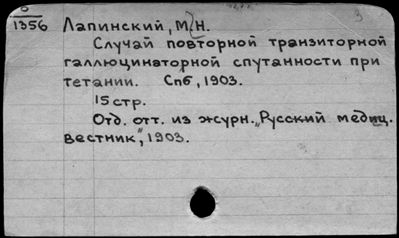 1356 Лапинский, М. Н.
Случай повторной транзиторной
галлюцинаторной спутанности при
тетании. Спб, 1903.
15 стр.
Отд. отт. из журн. „Русский медиц.
вестник", 1903.